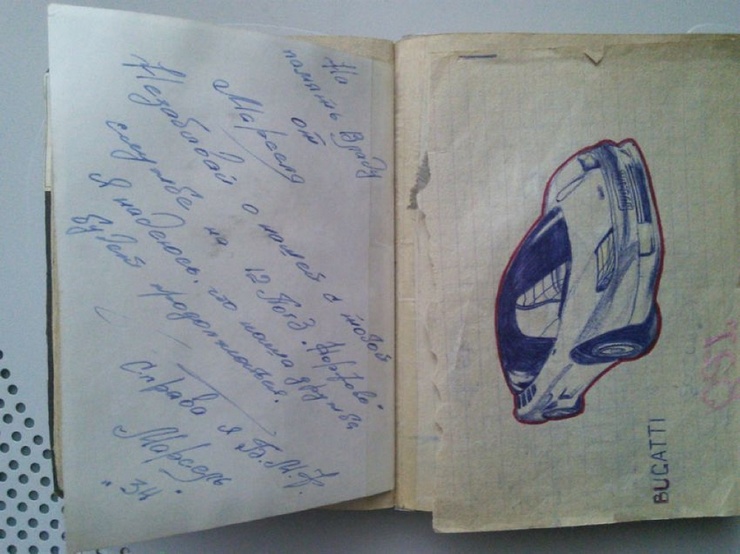 На
память Владу
от
Марселя
Незабывай о нашей с тобой
службе на 12 ПогЗ.
Я надеюсь, что наша дружба
будет продолжаться.
Справа я
Марсель
"34"
BUGATTI